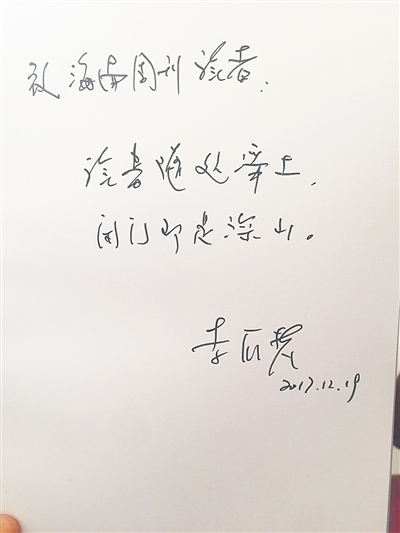 致海南周刊读者:
读書随处净土,
闭门即是深山。
李
2017.12.19